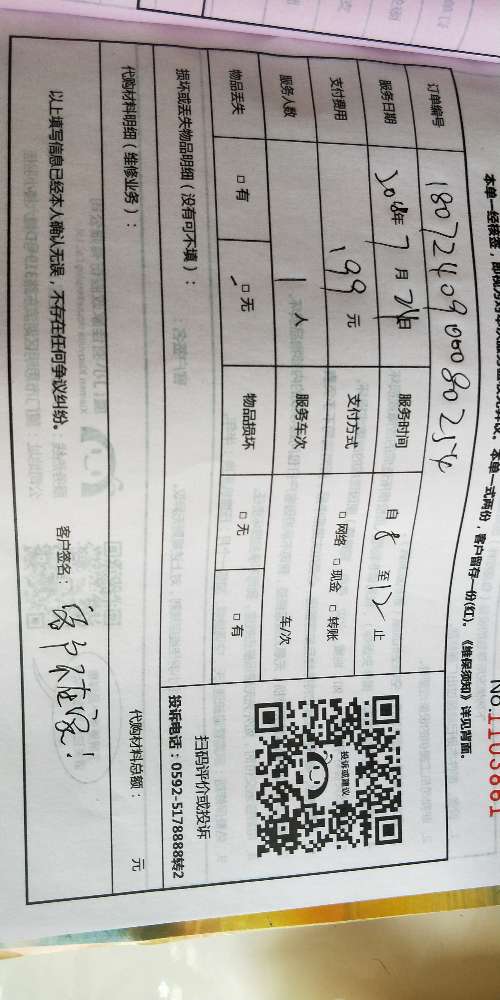 No.1103861
本单一式两份，客户留存一份(红)。《维保须知》详见背面。
订单编号 18072409000802554
服务日期 2018年 7 月 24日 服务时间 自 8 至 12 止
支付费用 199 元 支付方式 □ 网络 □ 现金 □ 转账
服务人数 1 人 服务车次 车/次
物品丢失 □ 有 □ 无 物品损坏 □ 无 □ 有
损坏或丢失物品明细（没有可不填）：
投诉或建议
扫码评价或投诉
投诉电话：0592-5178888转2
代购材料明细（维修业务）： 代购材料总额： 元
以上填写信息已经本人确认无误，不存在任何争议纠纷。 客户签名： 客户不在家！